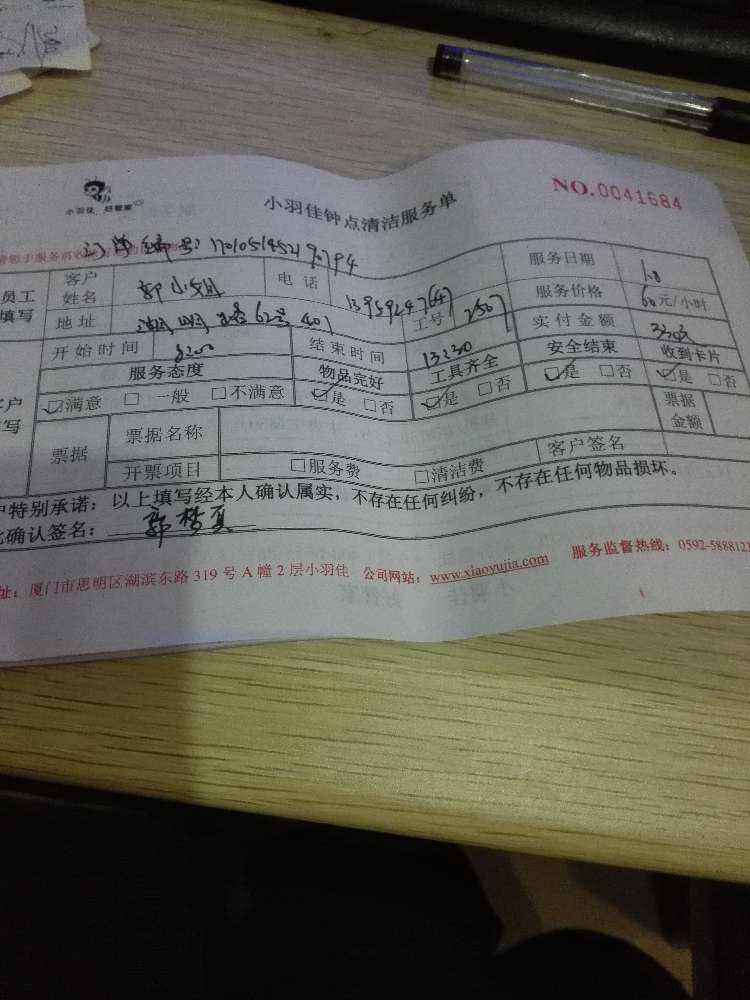 小羽佳 好管家
小羽佳钟点清洁服务单
NO.0041684
订单编号:
员工填写
客户姓名 郭小姐 电话 服务日期 1.8
地址 62号 401 工号 2507 服务价格 60元/小时
开始时间 8:00 结束时间 13:30 实付金额 330元
服务态度 物品完好 工具齐全 安全结束 收到卡片
☑满意 □一般 □不满意 ☑是 □否 ☑是 □否 ☑是 □否 ☑是 □否
票据 票据名称 票据金额
开票项目 □服务费 □清洁费 客户签名
户特别承诺:以上填写经本人确认属实,不存在任何纠纷,不存在任何物品损坏。
确认签名:
址:厦门市思明区湖滨东路 319 号 A 幢 2 层小羽佳 公司网站:www.xiaoyujia.com 服务监督热线:0592-588812